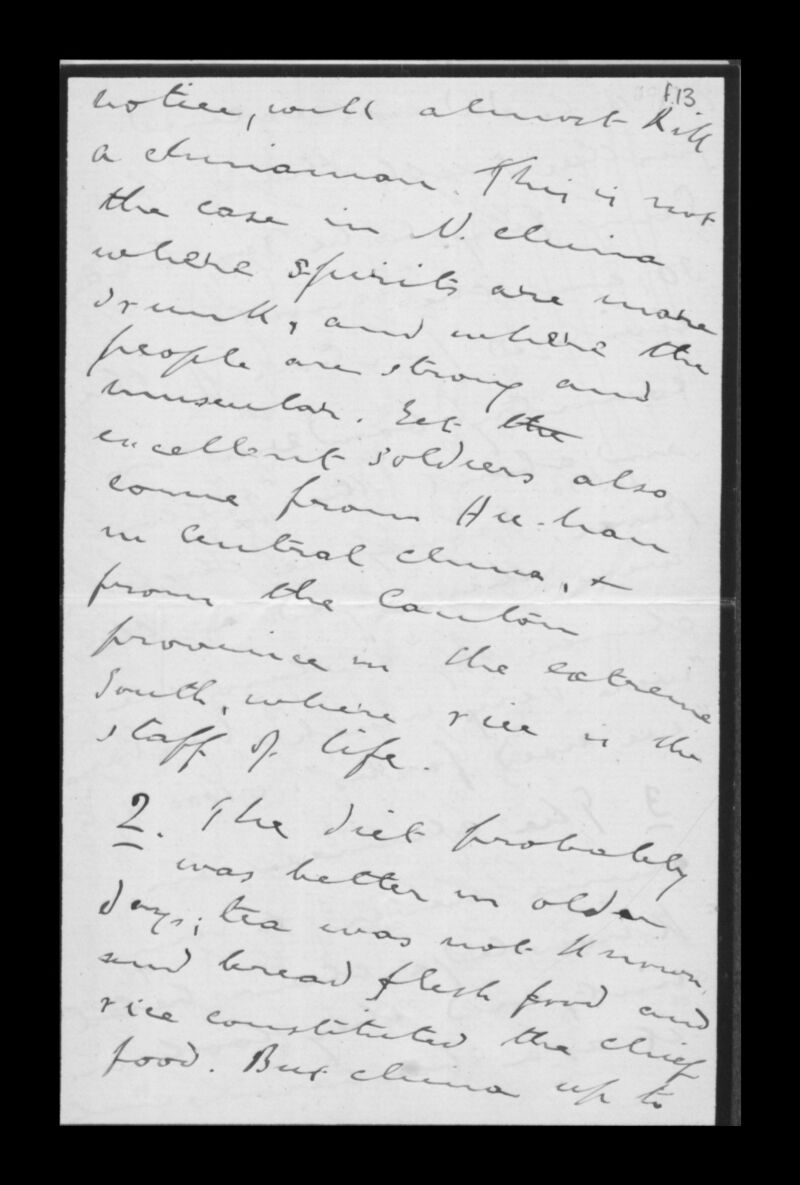 f.13
notice, will almost kill
a chinaman. This is not
the case in N. china
where spirits are more
drunk, and where the
people are strong and
muscular. Yet the
excellent soldiers also
come from Hu-nan
in Central china, +
from the Canton
province in the extreme
South, where rice is the
staff of life.
2. The diet probably
was better in older
days; tea was not known,
and bread flesh food and
rice constituted the chief
food. But china up to